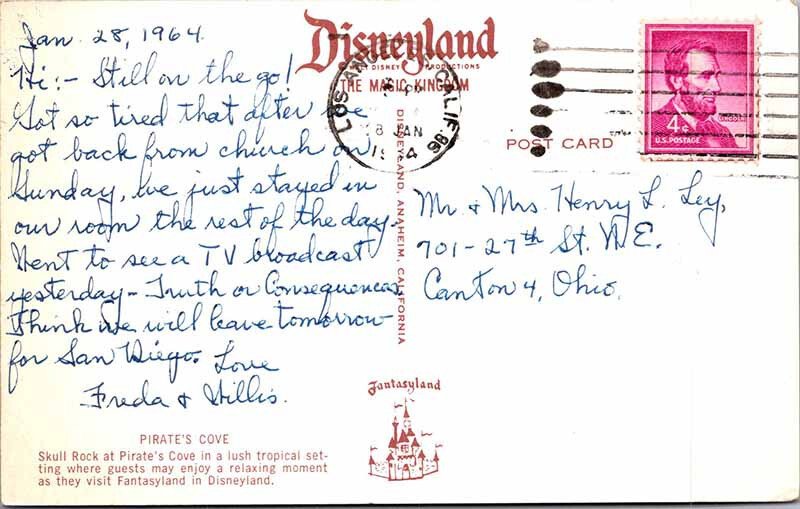 Jan. 28, 1964.
Hi:- Still on the go!
Got so tired that after we
got back from church on
Sunday, we just stayed in
our room the rest of the day.
Went to see a TV broadcast
yesterday - Truth or Consequences.
Think we will leave tomorrow
for San Diego. Love
Freda & Willis.
PIRATE'S COVE
Skull Rock at Pirate's Cove in a lush tropical set-
ting where guests may enjoy a relaxing moment
as they visit Fantasyland in Disneyland.
Disneyland
DISNEY PRODUCTIONS
THE MAGIC KINGDOM
DISNEYLAND, ANAHEIM, CALIFORNIA
Fantasyland
LOS ANG CALIF. 
PM
28 JAN
1964
POST CARD
LINCOLN
4¢
U.S. POSTAGE
Mr. & Mrs. Henry L. Ley,
701-27th St. N.E.
Canton 4, Ohio.